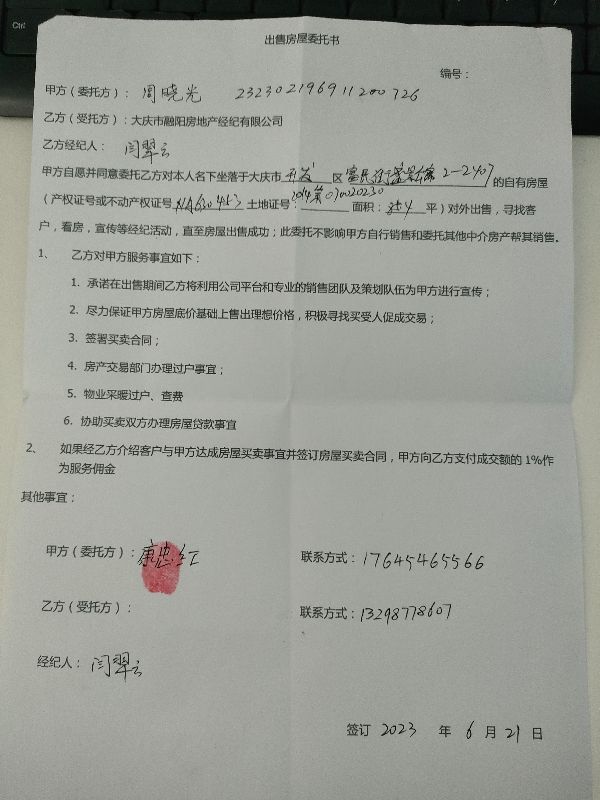 Ctrl
出售房屋委托书
编号：
甲方（委托方）：周晓光 232302196911200726
乙方（受托方）：大庆市融阳房地产经纪有限公司
乙方经纪人：闫翠云
甲方自愿并同意委托乙方对本人名下坐落于大庆市 开发 区 2-2407 的自有房屋
（产权证号或不动产权证号 NA630453 土地证号： 面积： 平）对外出售，寻找客
户，看房，宣传等经纪活动，直至房屋出售成功；此委托不影响甲方自行销售和委托其他中介房产帮其销售。
1、 乙方对甲方服务事宜如下：
1. 承诺在出售期间乙方将利用公司平台和专业的销售团队及策划队伍为甲方进行宣传；
2. 尽力保证甲方房屋底价基础上售出理想价格，积极寻找买受人促成交易；
3. 签署买卖合同；
4. 房产交易部门办理过户事宜；
5. 物业采暖过户、查费
6. 协助买卖双方办理房屋贷款事宜
2、 如果经乙方介绍客户与甲方达成房屋买卖事宜并签订房屋买卖合同，甲方向乙方支付成交额的 1%作
为服务佣金
其他事宜：
甲方（委托方）：康忠红 联系方式：17645465566
乙方（受托方）： 联系方式：13298778607
经纪人：闫翠云
签订 2023 年 6 月 21 日